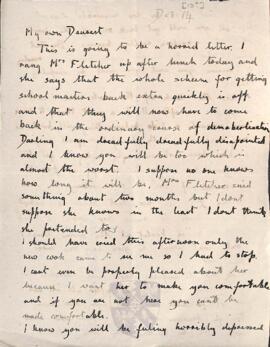 Dec 14
My own Dearest
This is going to be a horrid letter. I
rang Mrs Fletcher up after lunch today and
she says that the whole scheme for getting
school masters back extra quickly is off.
and that they will now have to come
back in the ordinary course of demobilization
Darling I am dreadfully dreadfully disappointed
and I know you will be too which is
almost the worst. I suppose no one knows
how long it will be, Mrs Fletcher said
something about two months but I dont
suppose she knows in the least I dont think
she pretended to.
I should have cried this afternoon only the
new cook came to see me so I had to stop.
I cant even be properly pleased about her
because I want her to make you comfortable
and if you are not here you cant be
made comfortable.
I know you will be feeling horribly depressed